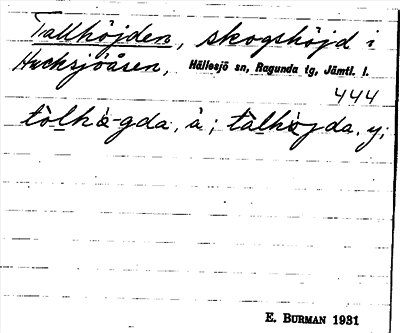 Tallhöjden, skogshöjd i
Hucksjöåsen, Hällesjö sn, Ragunda tg, Jämtl. l.
444
tòlhä̀-gda, ä; tàlhòjda, y;
E. BURMAN 1931